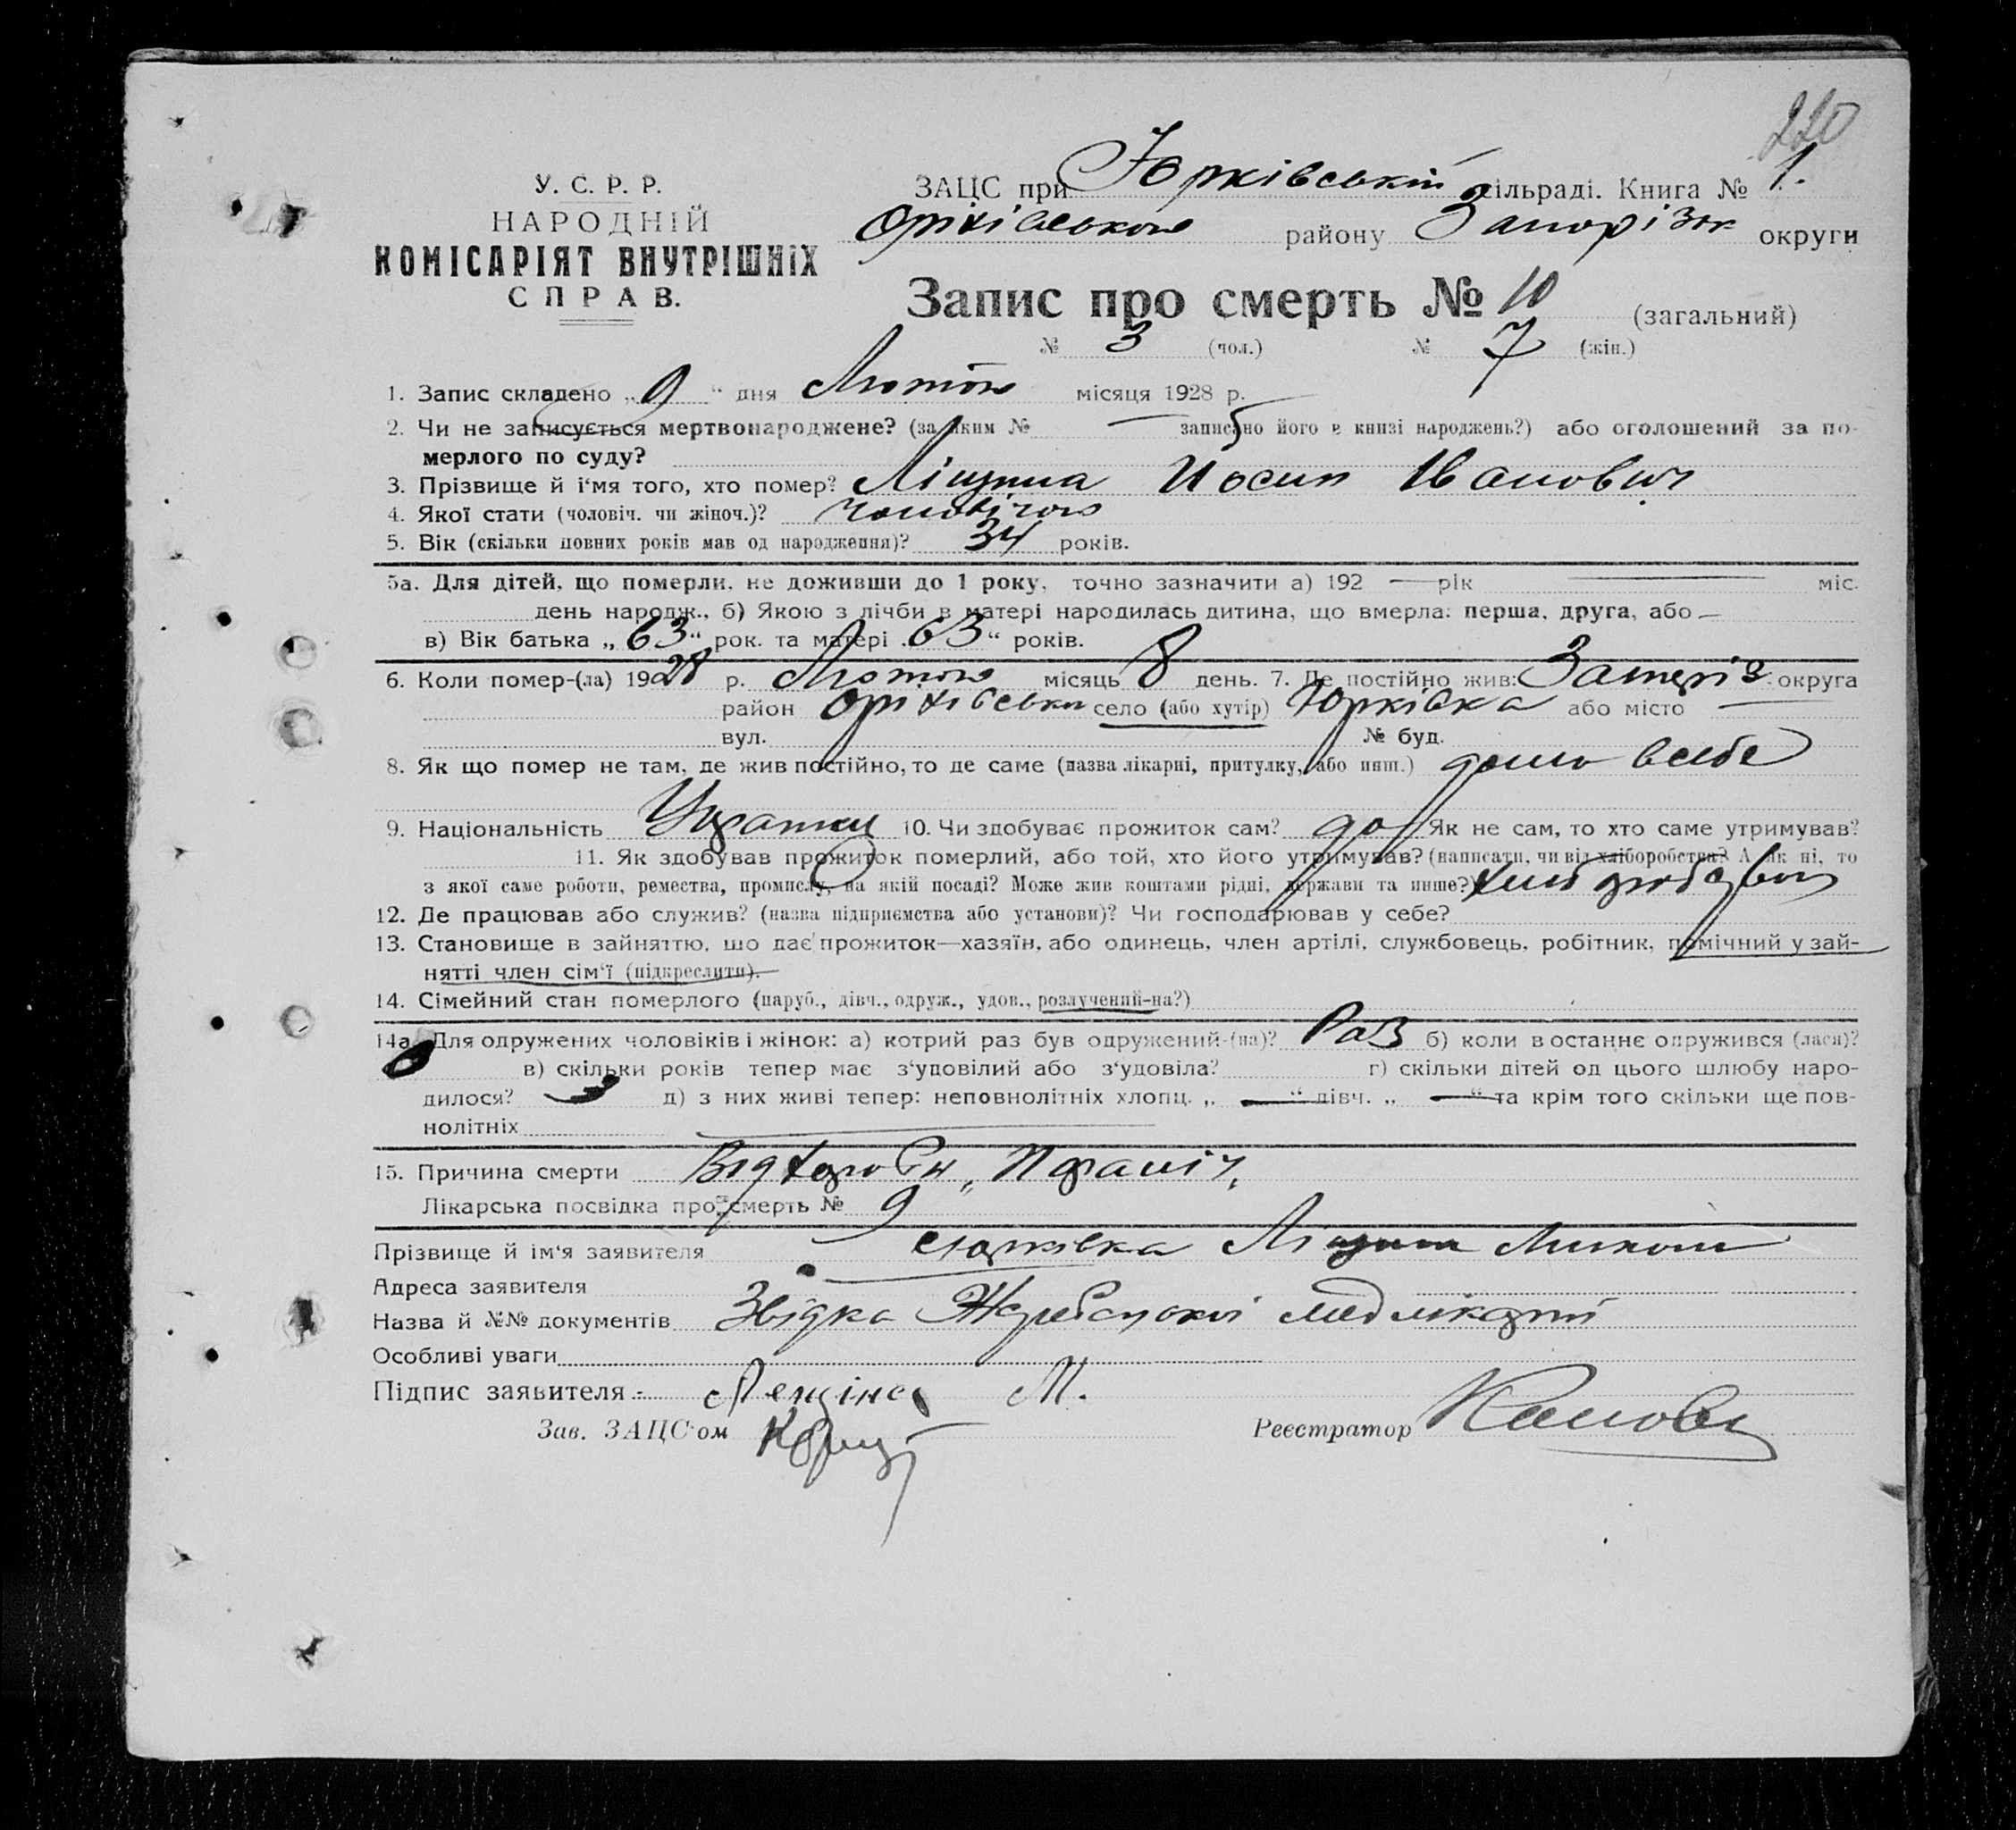 220
У. С. Р. Р.
НАРОДНІЙ
КОМІСАРІЯТ ВНУТРІШНІХ
СПРАВ.
ЗАЦС при Юрківській сільраді. Книга № 1.
Оріхівською району Запорізьк округи
Запис про смерть № 10 (загальний)
№ 3 (чол.) № 7 (жін.)
1. Запис складено „9“ дня Лютого місяця 1928 р.
2. Чи не записується мертвонароджене? (за яким № — записано його в книзі народжень?) або оголошений за по-
мерлого по суду?
3. Прізвище й і'мя того, хто помер? Ліщина Йосип Іванович
4. Якої стати (чоловіч. чи жіноч.)? чоловічого
5. Вік (скільки повних років мав од народження)? 34 років.
5а. Для дітей, що померли, не доживши до 1 року, точно зазначити а) 192 — рік — міс.
день народж., б) Якою з лічби в матері народилась дитина, що вмерла: перша, друга, або —
в) Вік батька „63“ рок. та матері „63“ років.
6. Коли помер-(ла) 1928 р. Лютого місяць 8 день. 7. Де постійно жив: округа
район Оріхівськи село (або хутір) Юрківка або місто —
вул. № буд.
8. Як що помер не там, де жив постійно, то де саме (назва лікарні, притулку, або инш.) дома в себе
9. Національність 10. Чи здобуває прожиток сам? Як не сам, то хто саме утримував?
11. Як здобував прожиток померлий, або той, хто його утримував? (написати, чи від хліборобства? А як ні, то
з якої саме роботи, ремества, промислу, на якій посаді? Може жив коштами рідні, держави та инше?)
12. Де працював або служив? (назва підприємства або установи)? Чи господарював у себе?
13. Становище в зайняттю, що дає прожиток—хазяїн, або одинець, член артілі, службовець, робітник, помічний у зай-
нятті член сім'ї (підкреслити).
14. Сімейний стан померлого (паруб., дівч., одруж., удов., розлучений-на?)
14а. Для одружених чоловіків і жінок: а) котрий раз був одружений-(на)? Раз б) коли в останнє одружився (лася)?
в) скільки років тепер має з'уповілий або з'удовіла? г) скільки дітей од цього шлюбу наро-
дилося? д) з них живі тепер: неповнолітніх хлопц. „—“ дівч. „—“ та крім того скільки ще пов-
нолітніх
15. Причина смерти Від хороби
Лікарська посвідка про смерть № 9
Прізвище й ім'я заявителя Юрківка Ліщина
Адреса заявителя
Назва й №№ документів
Особливі уваги
Підпис заявителя:- Лещіна М.
Зав. ЗАЦС'ом Реєстратор